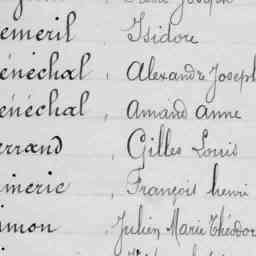 emeril, Isidore
énéchal, Alexandre Joseph
énéchal, Amand Anne
errand, Gilles Louis
imerie, François henri
imon, Julien Marie Théodor